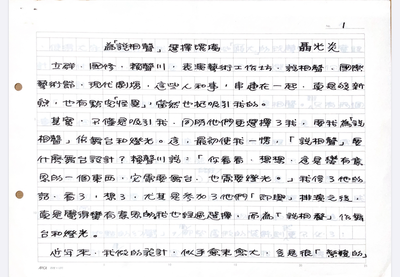 1
為「說相聲」選擇環境 聶光炎
立群、國修、賴聲川、表演藝術工作坊、說相聲、國際
藝術節、現代劇場,這些人和事,串連在一起,當是 新
,也有點安「怪異」,當然也把吸引我的。
其實,不僅是吸引我,同時他們更選擇了我,要我為「說
相聲」做舞台和燈光。這,最初使我一愣,「說相聲」要
什麼舞台設計?賴聲川說:「你看看,想想,這是蠻有意
思的一個東西,它需要舞台,也需要燈光。」我信了他的
話,看了,想了,尤其是參加了他們「即興」排演之後,
覺得蠻有意思的我也 選擇,而為「說相聲」作舞
台和燈光。
近年來,我做的設計,似乎愈來愈大,